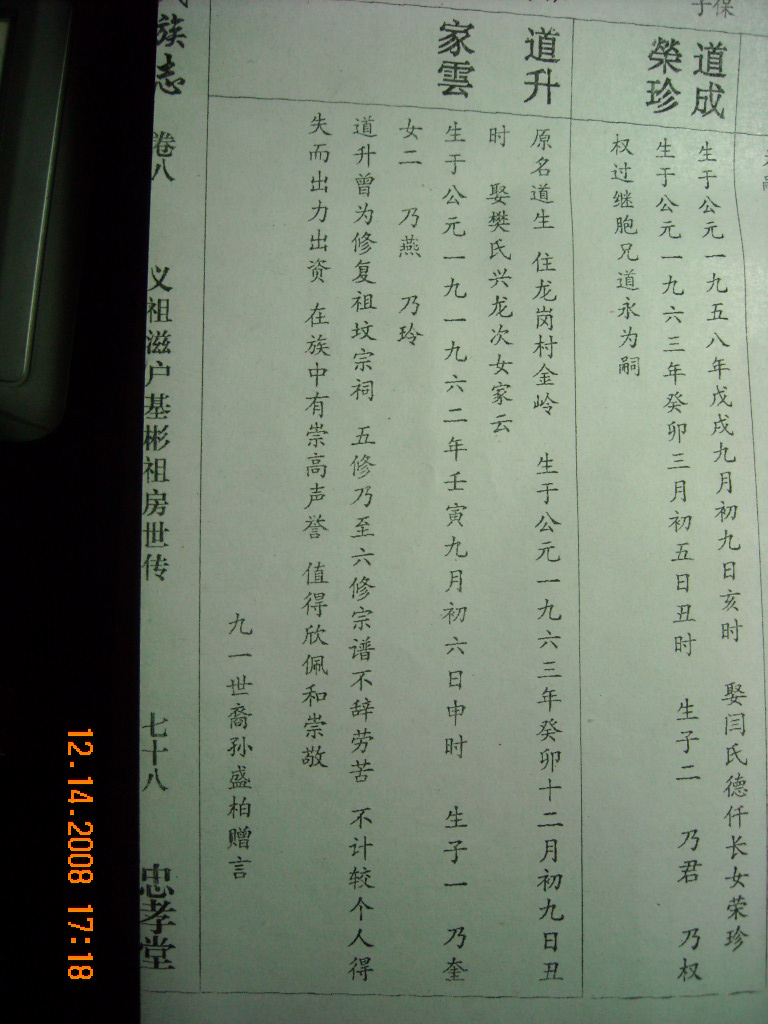 子保
道成
榮珍
生于公元一九五八年戊戌九月初九日亥时 娶闫氏德仟长女荣珍
生于公元一九六三年癸卯三月初五日丑时 生子二 乃君 乃权
权过继胞兄道永为嗣
道升
家雲
原名道生 住龙岗村金岭 生于公元一九六三年癸卯十二月初九日丑
时 娶樊氏兴龙次女家云
生于公元一九一九六二年壬寅九月初六日申时 生子一 乃奎
女二 乃燕 乃玲
道升曾为修复祖坟宗祠 五修乃至六修宗谱不辞劳苦 不计较个人得
失而出力出资 在族中有崇高声誉 值得欣佩和崇敬
九一世裔孙盛柏赠言
族志 卷八 义祖滋户基彬祖房世传 七十八 忠孝堂
12.14.2008 17:18